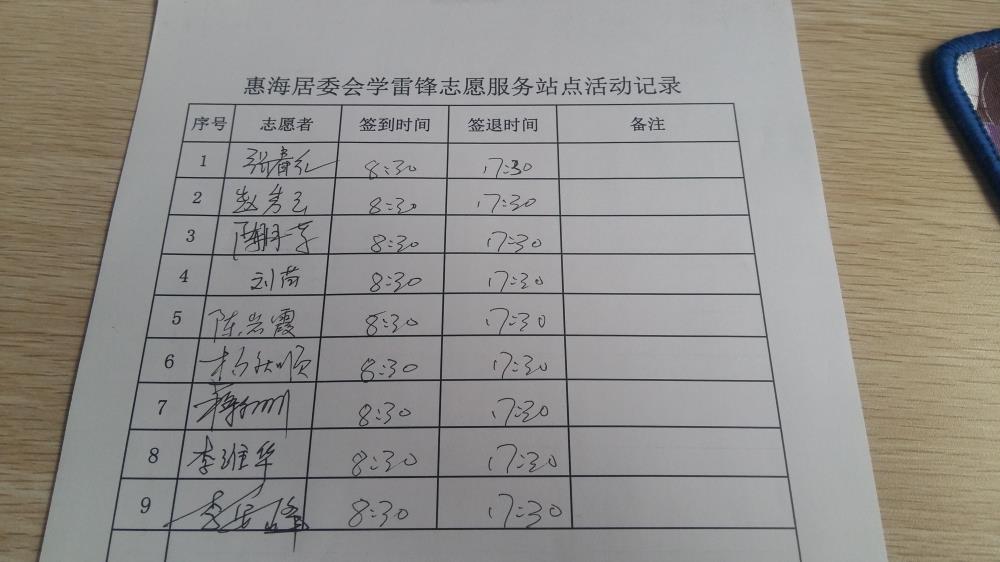 惠海居委会学雷锋志愿服务站点活动记录
序号 志愿者 签到时间 签退时间 备注
1 张春红 8:30 17:30
2 赵秀云 8:30 17:30
3 8:30 17:30
4 刘苗 8:30 17:30
5 陈岩霞 8:30 17:30
6 8:30 17:30
7 8:30 17:30
8 李维华 8:30 17:30
9 8:30 17:30